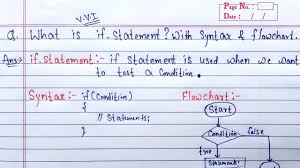 Page No. :
Date : / /
V.V.I
Q. What is if-statement? With Syntax & flowchart.
Ans:- if-statement:- if statement is used when we want
to test a Condition.
Syntax:- if(Condition)
{
// Statements;
}
Flowchart:-
Start
Condition
false
true
Statements;